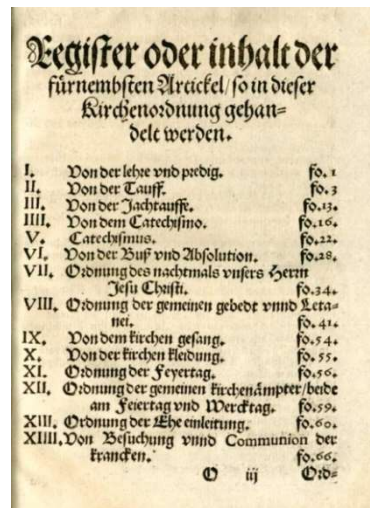 Register oder inhalt der
fürnembsten Artickel/ so in dieser
Kirchenordnung gehan=
delt werden.
I. Von der lehre vnd predig. fo. 1
II. Von der Tauff. fo. 3
III. Von der Jachtauffe. fo. 13.
IIII. Von dem Catechismo. fo. 16.
V. Catechismus. fo. 22.
VI. Von der Buß vnd Absolution. fo. 28.
VII. Ordnung des nachtmals vnsers Herrn
Jesu Christi. fo. 34.
VIII. Ordnung der gemeinen gebedt vnnd Leta=
nei. fo. 41.
IX. Von dem kirchen gesang. fo. 54.
X. Von der kirchen kleidung. fo. 55.
XI. Ordnung der Feyertag. fo. 56.
XII. Ordnung der gemeinen kirchenämpter/ beide
am Feiertag vnd Wercktag. fo. 59.
XIII. Ordnung der Ehe einleitung. fo. 60.
XIIII. Von Besuchung vnnd Communion der
krancken. fo. 66.
O iij Ord=